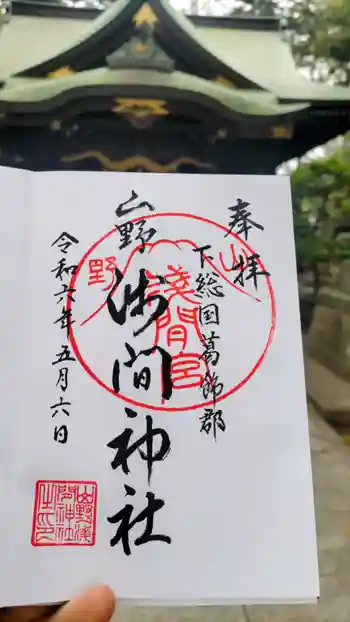 奉拝
下総国葛飾郡
山野
浅間神社
令和六年五月六日
山野
淺間宮
山野浅間神社之印